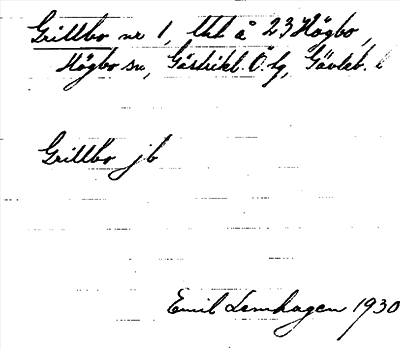 Grillbo nr 1, Utt å 23 Högbo,
Högbo sn, Gästrikl. Ö. tg, Gävleb. l
Grillbo jb
Emil Lernhagen 1930